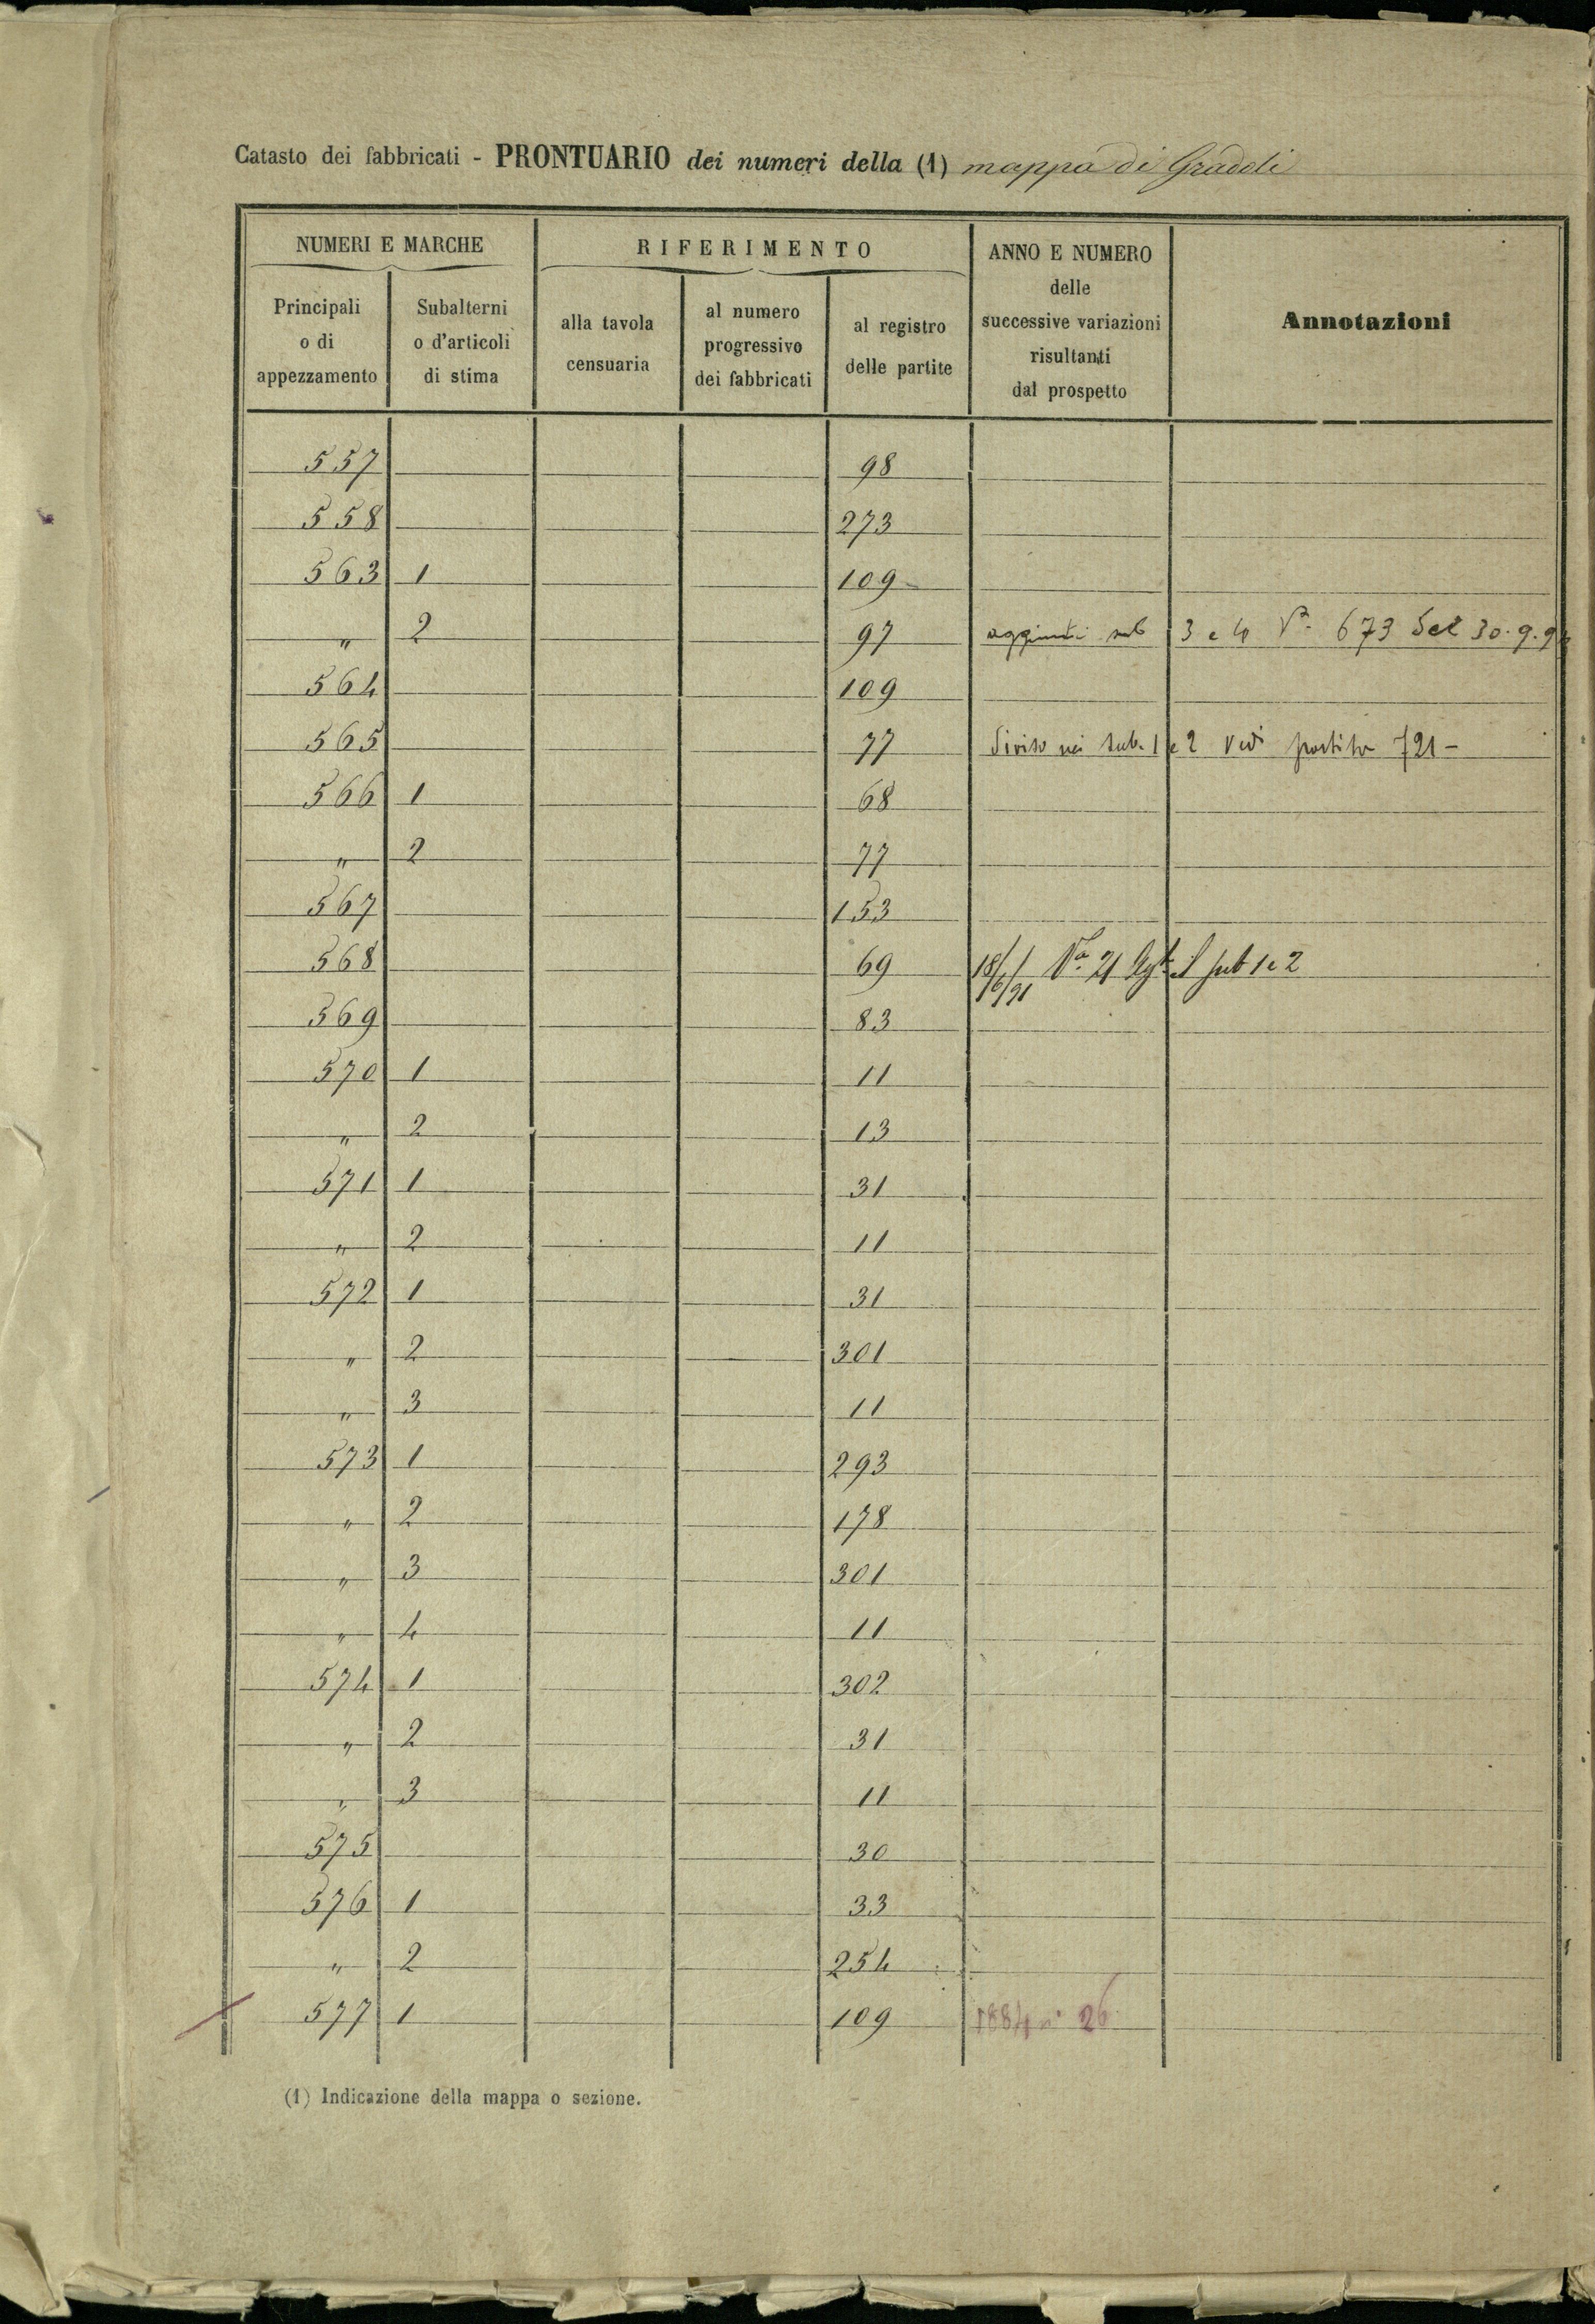 Catasto dei fabbricati - PRONTUARIO dei numeri della (1) mappa di Gradoli
NUMERI E MARCHE
RIFERIMENTO
ANNO E NUMERO
delle
successive variazioni
risultanti
dal prospetto
Annotazioni
Principali
o di
appezzamento
Subalterni
o d'articoli
di stima
alla tavola
censuaria
al numero
progressivo
dei fabbricati
al registro
delle partite
557 98
558 273
563 1 109
" 2 97 aggiunti sub 3 e 4 Va. 673 del 30.9.9
564 109
565 77 diviso nei sub. 1 e 2 vedi partita 721 -
566 1 68
" 2 77
567 153
568 69 18/6/91 Va. 21 sub 1 e 2
569 83
570 1 11
" 2 13
571 1 31
" 2 11
572 1 31
" 2 301
" 3 11
573 1 293
" 2 178
" 3 301
" 4 11
574 1 302
" 2 31
" 3 11
575 30
576 1 33
" 2 254
577 1 109 1884 n° 26
(1) Indicazione della mappa o sezione.